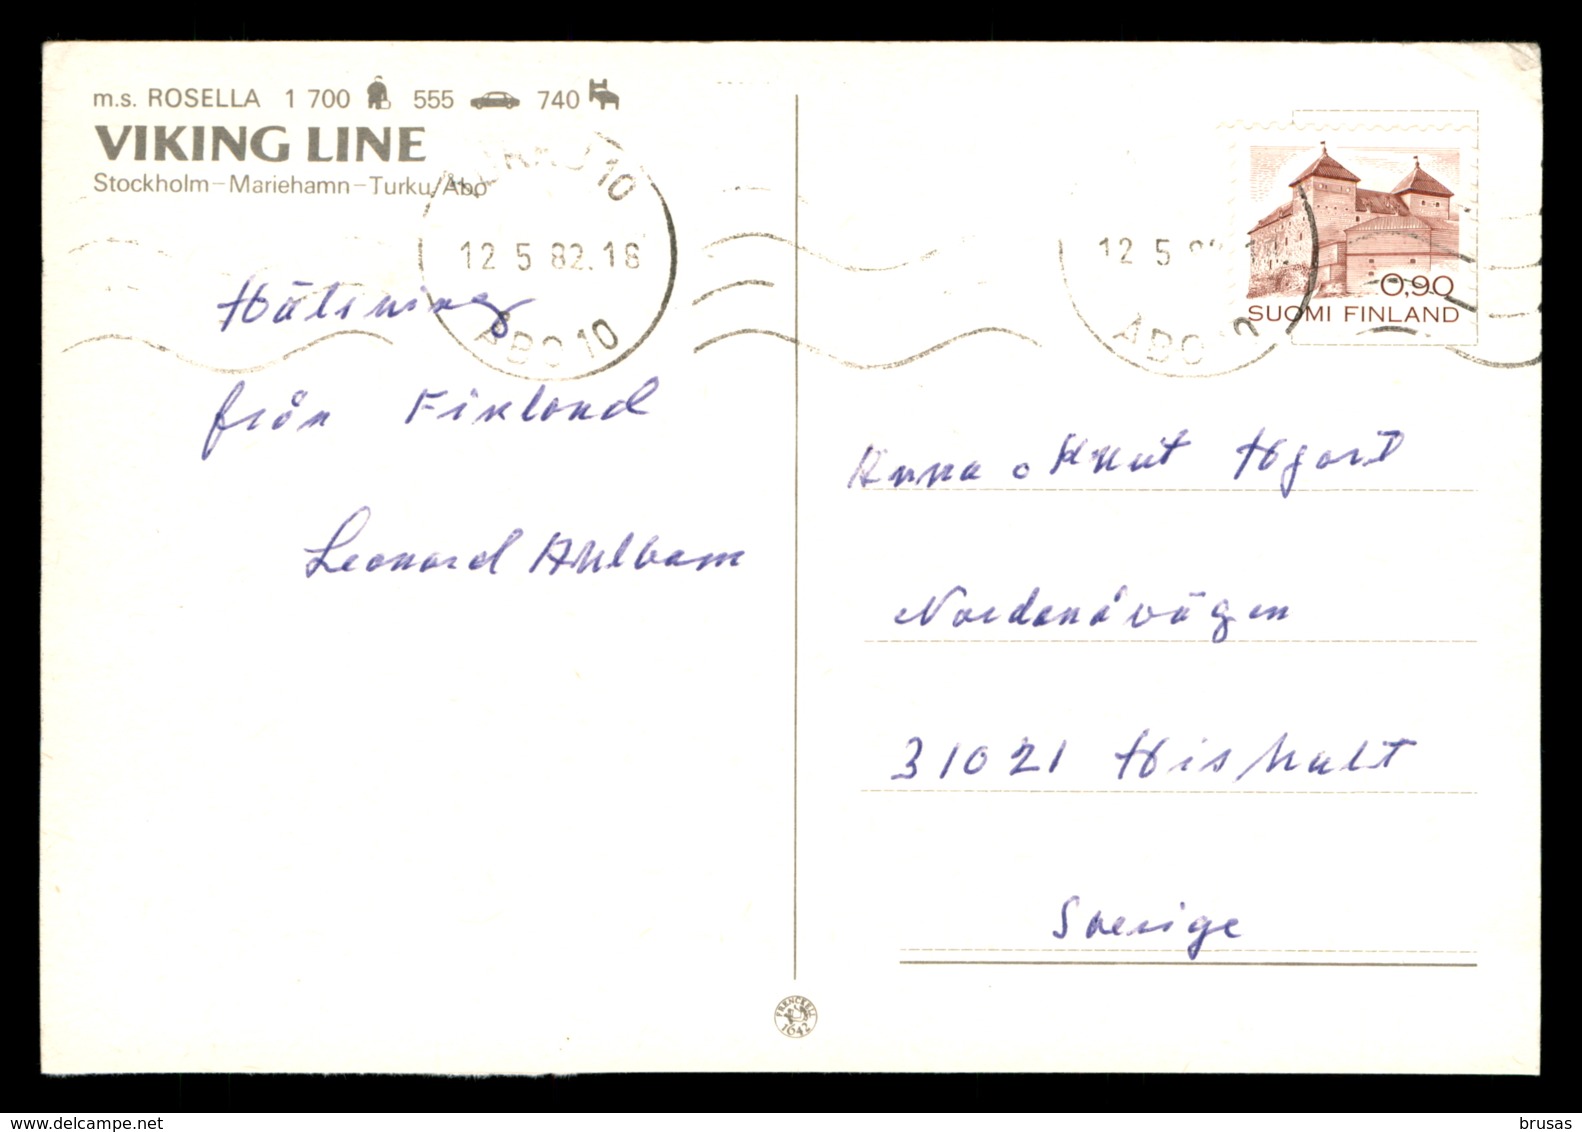 m.s. ROSELLA 1 700 555 740
VIKING LINE
Stockholm-Mariehamn-Turku/Åbo
12.5.82.18
ÅBO 10
Hälsning
från Finland
Leonard Ahlbom
12 5
ÅBO
0,90
SUOMI FINLAND
Anna o Knut
Nordenåvägen
31021 Hishult
Sverige
FRENCKELL
1642
delcampe.net
brusas